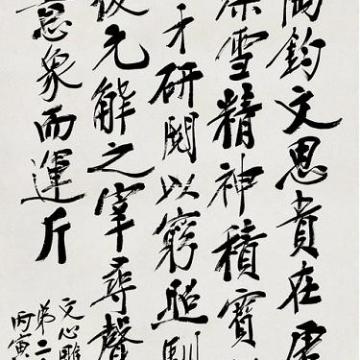 陶鈞文思貴在虛
澡雪精神積寶
才研閱以窮照馴
後元解之宰尋聲
意象而運斤
文心雕
第二
丙寅